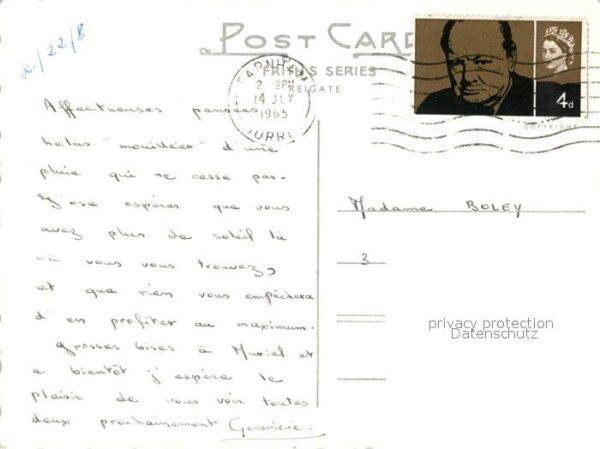 2/22/8
POST CARD
FRITH'S SERIES
REIGATE
FARNHAM
2 PM
14 JLY
1965
SURREY
4d
COPYRIGHT
Affectueuses pensées,
hélas "mouillées" d'une
pluie qui ne cesse pas.
J'ose espérer que vous
avez plus de soleil là
où vous vous trouvez,
et que rien vous empêchera
d'en profiter au maximum.
Grosses bises à Muriel et
a bientôt j'espère le
plaisir de vous voir toutes
deux prochainement Geneviève.
Madame BOLEY
3
privacy protection
Datenschutz